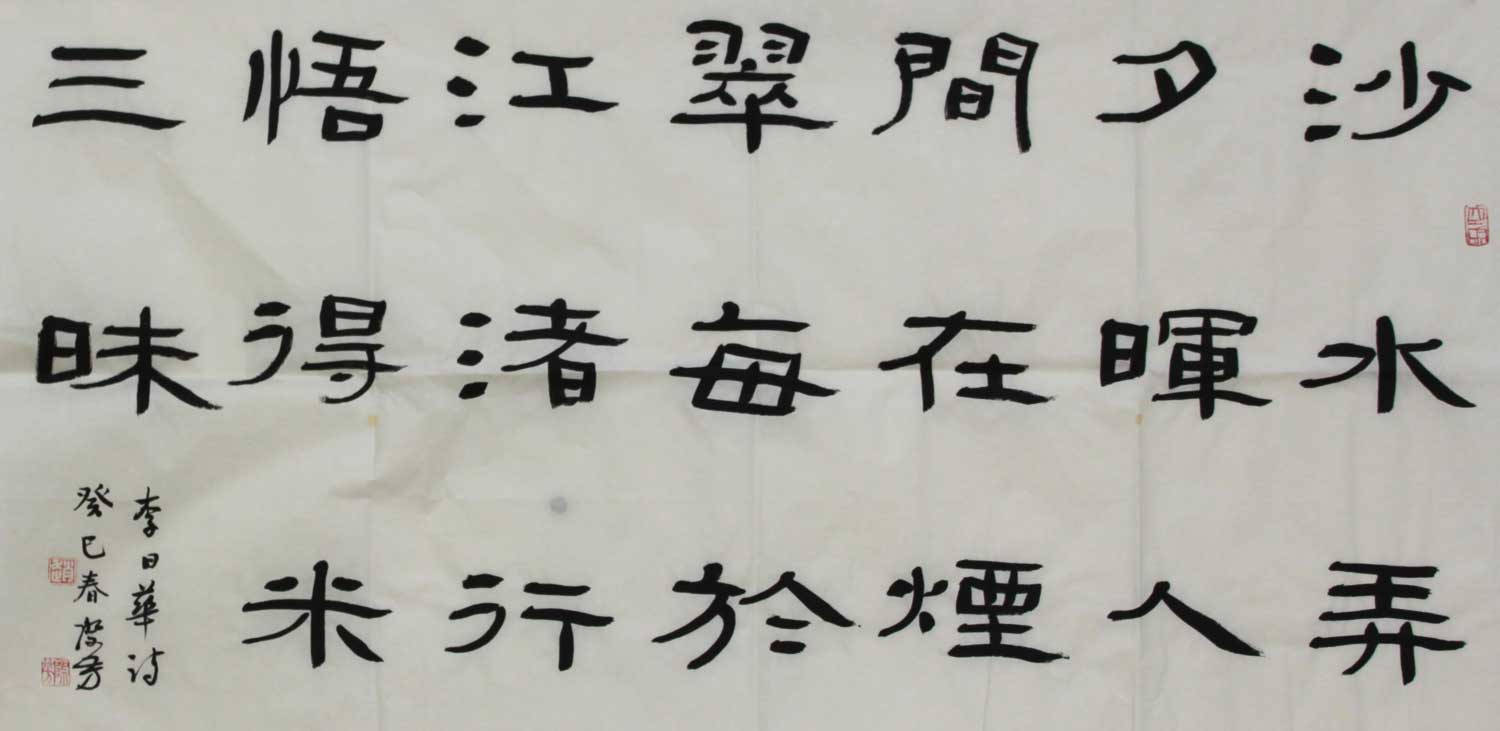 沙水弄
夕暉人
間在煙
翠每於
江渚行
悟得米
三昧
李日華詩
癸巳春